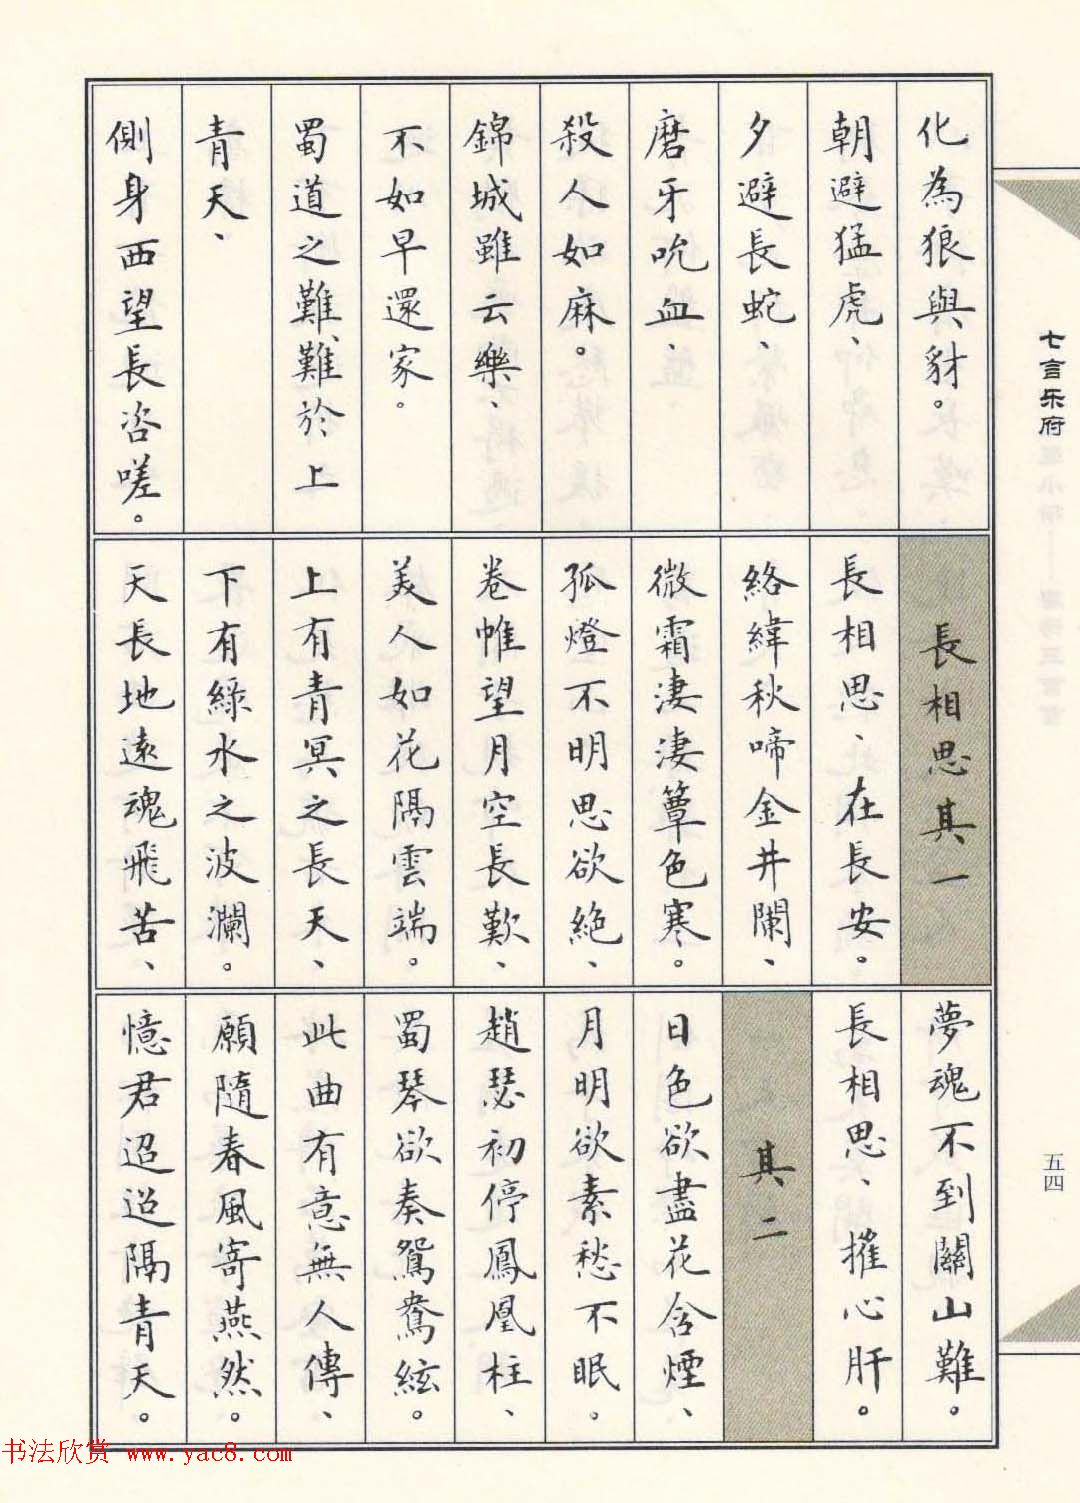 化為狼與豺。
朝避猛虎、
夕避長蛇、
磨牙吮血、
殺人如麻。
錦城雖云樂、
不如早還家。
蜀道之難、難於上
青天、
側身西望長咨嗟。
長相思其一
長相思、在長安。
絡緯秋啼金井闌、
微霜淒淒簟色寒。
孤燈不明思欲絕、
卷帷望月空長歎、
美人如花隔雲端。
上有青冥之長天、
下有綠水之波瀾。
天長地遠魂飛苦、
夢魂不到關山難。
長相思、摧心肝。
其二
日色欲盡花含煙、
月明欲素愁不眠。
趙瑟初停鳳凰柱、
蜀琴欲奏鴛鴦絃。
此曲有意無人傳、
願隨春風寄燕然。
憶君迢迢隔青天。
七言乐府
五四
书法欣赏 www.yac8.com